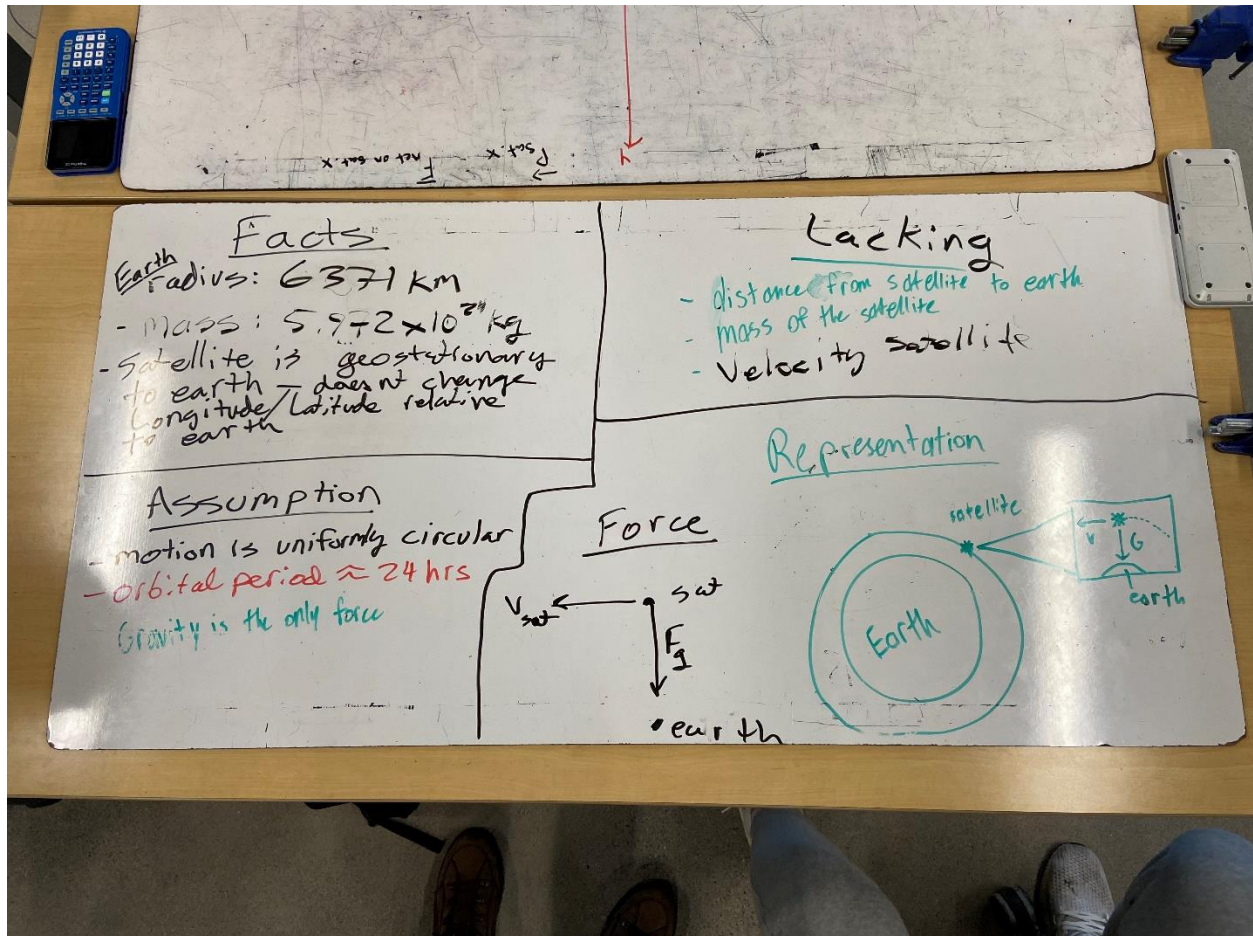 P sat.x
F net on sat.x
Facts
Earth
radius: 6371 km
- mass: 5.972 x 10^24 kg
- satellite is geostationary
to earth - doesnt change
Longitude/Latitude relative
to earth
Lacking
- distance from satellite to earth
- mass of the satellite
- Velocity satellite
Assumption
- motion is uniformly circular
- orbital period ≈ 24 hrs
Gravity is the only force
Force
V sat
sat
Fg
earth
Representation
satellite
Earth
v
G
earth